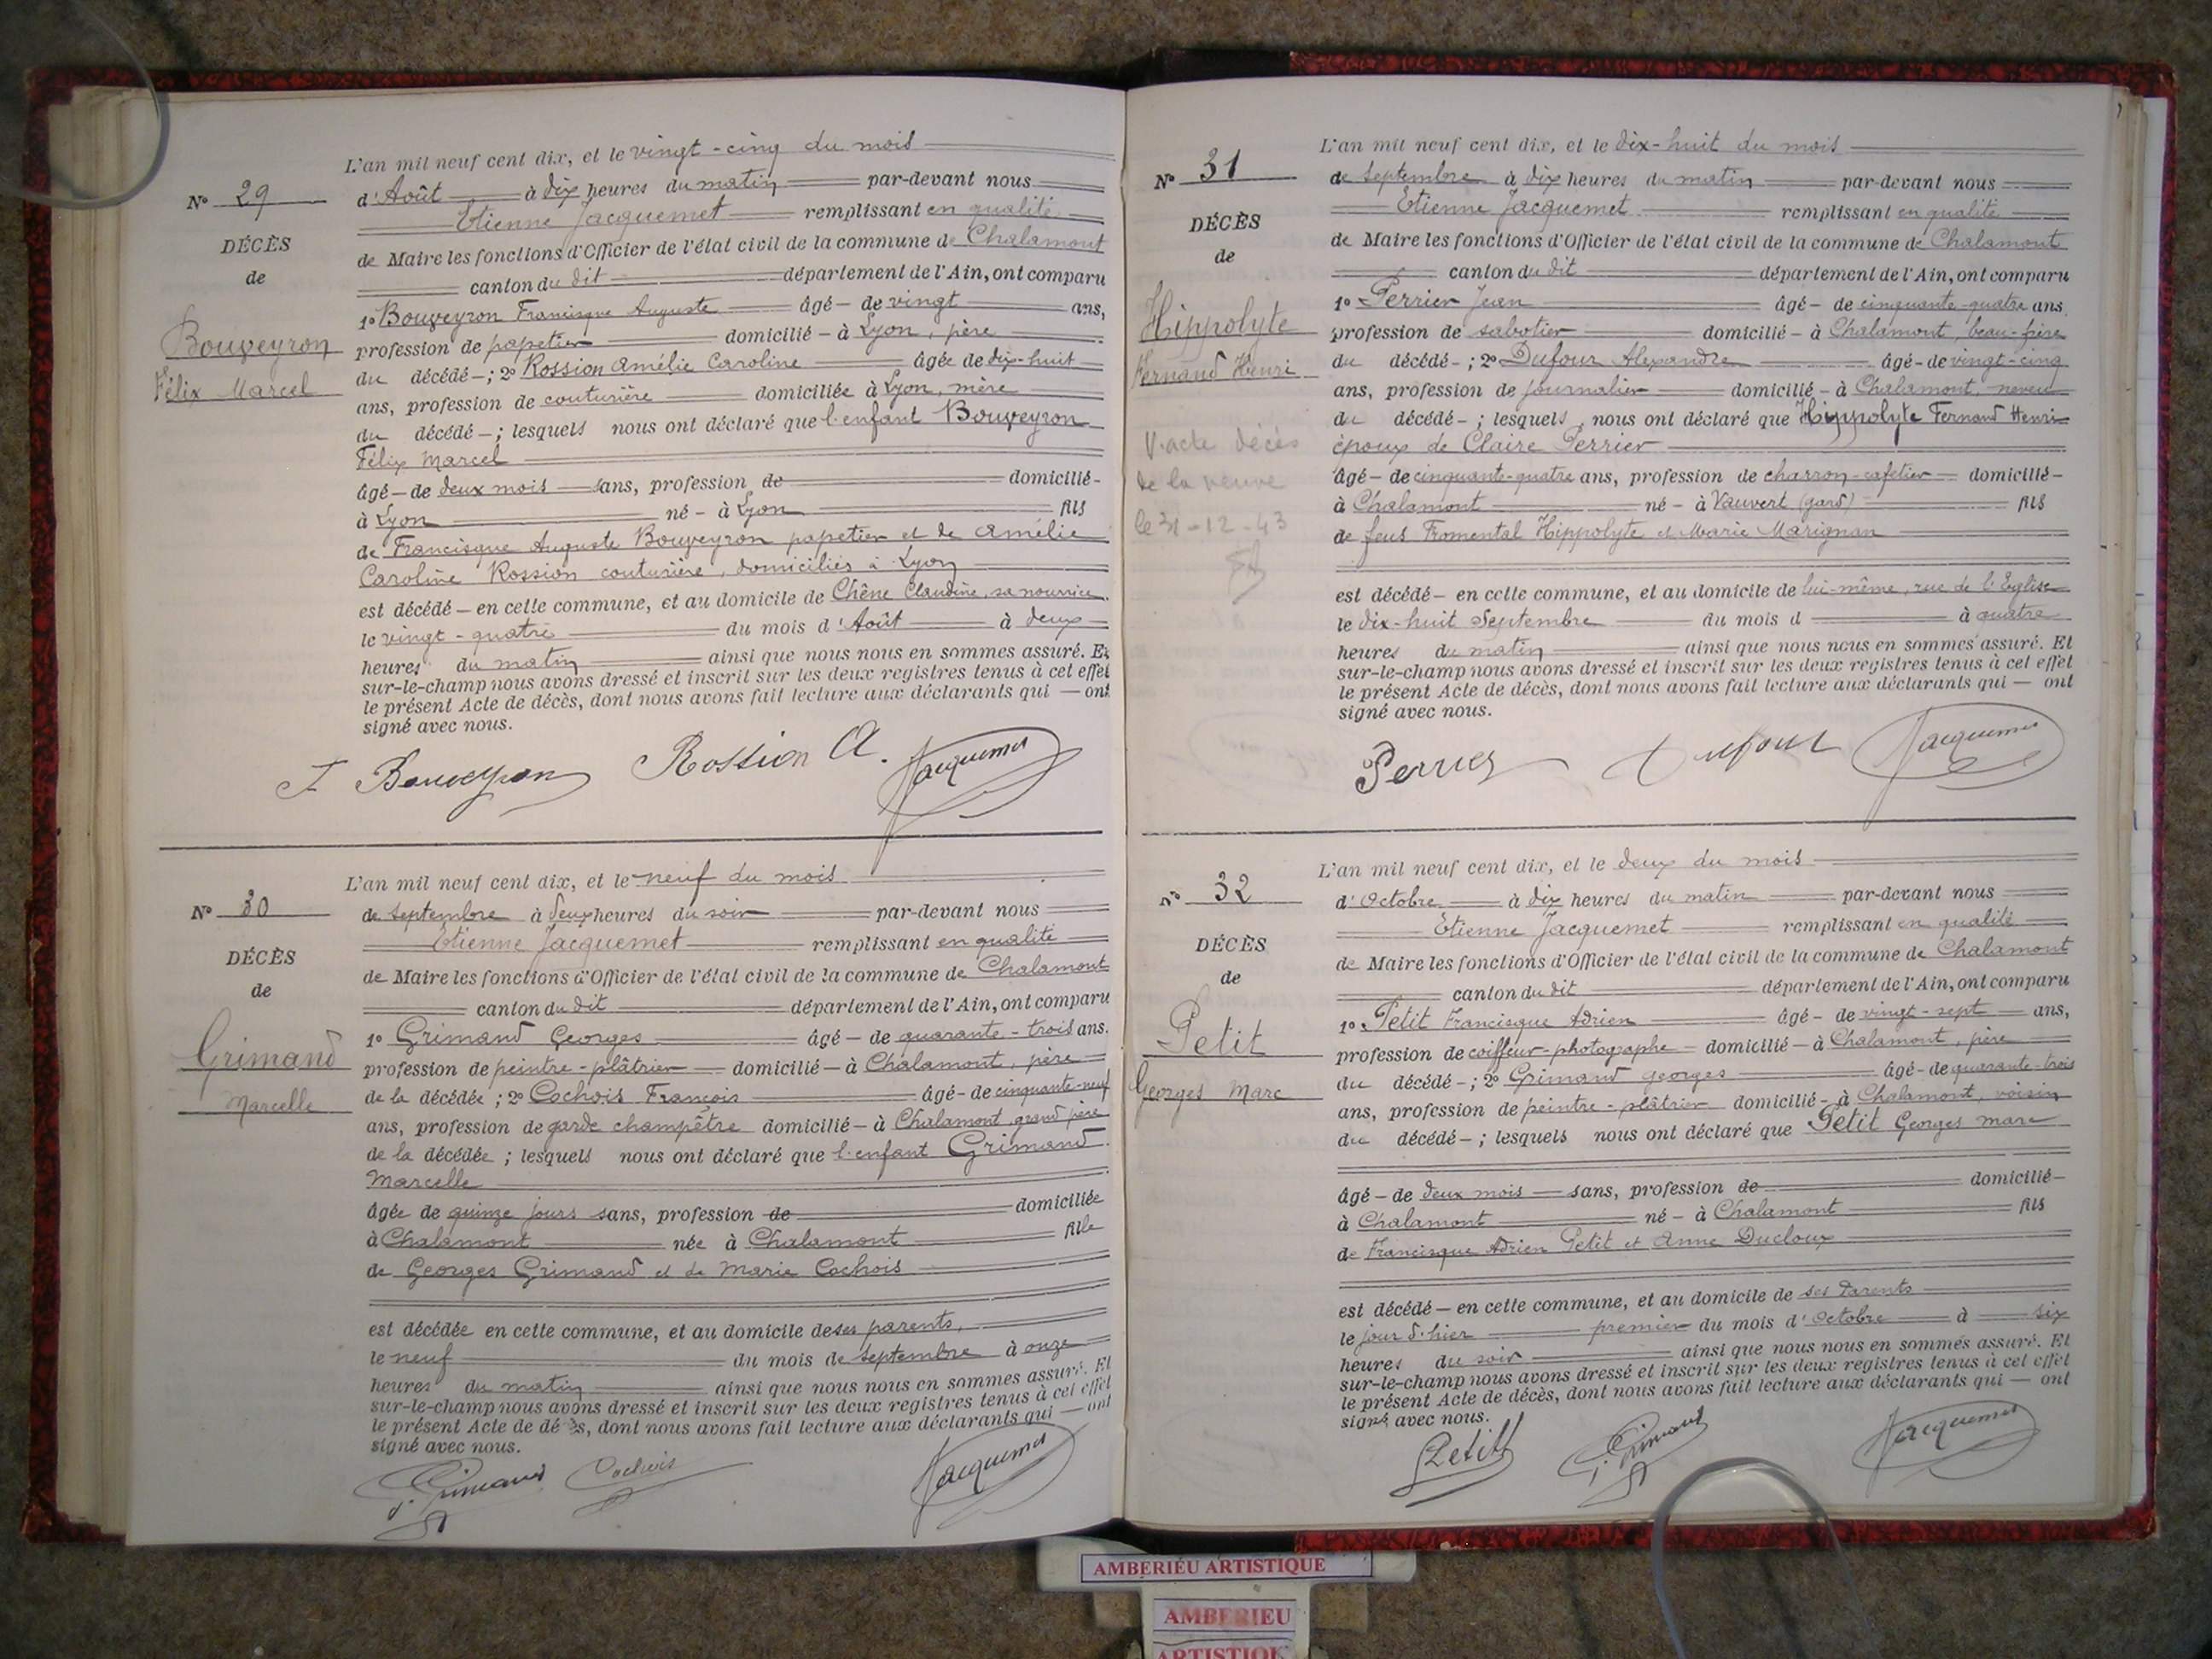 N° 29
DÉCÈS
de
Bouveyron
Félix Marcel
L'an mil neuf cent dix, et le vingt-cinq du mois
d'Août à dix heures du matin par-devant nous
Etienne Jacquemet remplissant en qualité
de Maire les fonctions d'Officier de l'état civil de la commune de Chalamont
canton du dit département de l'Ain, ont comparu
1° Bouveyron Francisque Auguste âgé - de vingt ans,
profession de papetier domicilié - à Lyon, père
du décédé - ; 2° Rossion Amélie Caroline âgée de dix-huit
ans, profession de couturière domiciliée à Lyon, mère
du décédé - ; lesquels nous ont déclaré que l'enfant Bouveyron
Félix Marcel
âgé - de deux mois sans, profession de domicilié -
à Lyon né - à Lyon fils
de Francisque Auguste Bouveyron papetier et de Amélie
Caroline Rossion couturière, domiciliés à Lyon
est décédé - en cette commune, et au domicile de Chêne Claudine, sa nourrice.
le vingt-quatre du mois d'Août à deux
heures du matin ainsi que nous nous en sommes assuré. Et
sur-le-champ nous avons dressé et inscrit sur les deux registres tenus à cet effet
le présent Acte de décès, dont nous avons fait lecture aux déclarants qui - ont
signé avec nous.
F Bouveyron Rossion A. Jacquemet
N° 30
DÉCÈS
de
Grimand
Marcelle
L'an mil neuf cent dix, et le neuf du mois
de Septembre à deux heures du soir par-devant nous
Etienne Jacquemet remplissant en qualité
de Maire les fonctions d'Officier de l'état civil de la commune de Chalamont
canton du dit département de l'Ain, ont comparu
1° Grimand Georges âgé - de quarante-trois ans.
profession de peintre-plâtrier domicilié - à Chalamont, père
de la décédée ; 2° Cochois François âgé - de cinquante-neuf
ans, profession de garde champêtre domicilié - à Chalamont grand père
de la décédée ; lesquels nous ont déclaré que l'enfant Grimand
Marcelle
âgée de quinze jours sans, profession de domiciliée
à Chalamont née à Chalamont fille
de Georges Grimand et de Marie Cochois
est décédée en cette commune, et au domicile de ses parents,
le neuf du mois de Septembre à onze
heures du matin ainsi que nous nous en sommes assuré. Et
sur-le-champ nous avons dressé et inscrit sur les deux registres tenus à cet effet
le présent Acte de décès, dont nous avons fait lecture aux déclarants qui - ont
signé avec nous.
G. Grimand Cochois Jacquemet
N° 31
DÉCÈS
de
Hippolyte
Fernand Henri
V. acte décès
de la veuve
le 31-12-43
L'an mil neuf cent dix, et le dix-huit du mois
de Septembre à dix heures du matin par-devant nous
Etienne Jacquemet remplissant en qualité
de Maire les fonctions d'Officier de l'état civil de la commune de Chalamont
canton du dit département de l'Ain, ont comparu
1° Perrier Jean âgé - de cinquante-quatre ans.
profession de sabotier domicilié - à Chalamont, beau-frère
du décédé - ; 2° Dufour Alexandre âgé - de vingt-cinq
ans, profession de journalier domicilié - à Chalamont, neveu
du décédé - ; lesquels nous ont déclaré que Hippolyte Fernand Henri
époux de Claire Perrier
âgé - de cinquante-quatre ans, profession de charron-cafetier domicilié -
à Chalamont né - à Vauvert (gard) fils
de feus Fromental Hippolyte et Marie Marignan
est décédé - en cette commune, et au domicile de lui-même, rue de l'Eglise
le dix-huit Septembre du mois d à quatre
heures du matin ainsi que nous nous en sommes assuré. Et
sur-le-champ nous avons dressé et inscrit sur les deux registres tenus à cet effet
le présent Acte de décès, dont nous avons fait lecture aux déclarants qui - ont
signé avec nous.
Perrier Dufour Jacquemet
N° 32
DÉCÈS
de
Petit
Georges Marc
L'an mil neuf cent dix, et le deux du mois
d'Octobre à dix heures du matin par-devant nous
Etienne Jacquemet remplissant en qualité
de Maire les fonctions d'Officier de l'état civil de la commune de Chalamont
canton du dit département de l'Ain, ont comparu
1° Petit Francisque Adrien âgé - de vingt-sept ans,
profession de coiffeur-photographe domicilié - à Chalamont, père
du décédé - ; 2° Grimand georges âgé - de quarante-trois
ans, profession de peintre-plâtrier domicilié - à Chalamont, voisin
du décédé - ; lesquels nous ont déclaré que Petit Georges marc
âgé - de deux mois sans, profession de domicilié -
à Chalamont né - à Chalamont fils
de Francisque Adrien Petit et Anne Ducloux
est décédé - en cette commune, et au domicile de ses Parents
le jour d'hier premier du mois d'Octobre à six
heures du soir ainsi que nous nous en sommes assuré. Et
sur-le-champ nous avons dressé et inscrit sur les deux registres tenus à cet effet
le présent Acte de décès, dont nous avons fait lecture aux déclarants qui - ont
signé avec nous.
Petit G. Grimand Jacquemet
AMBERIEU ARTISTIQUE
AMBERIEU
ARTISTIQUE